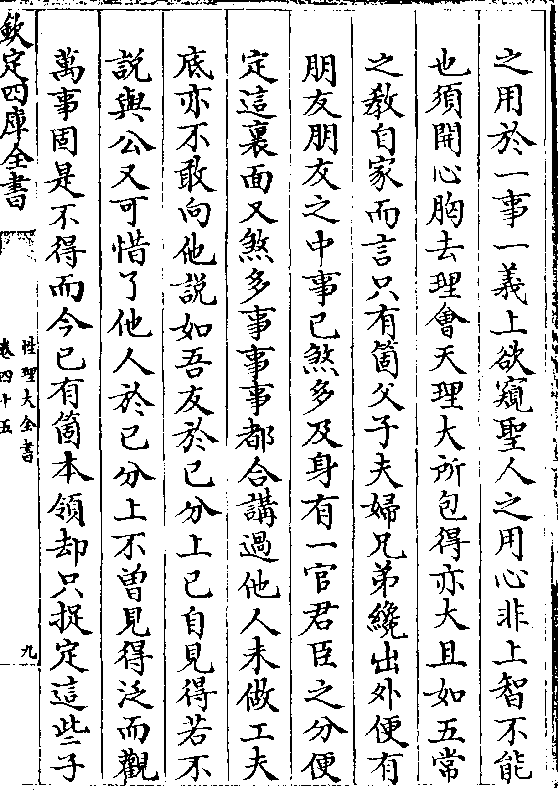 之用於一事一義上欲窺聖人之用心非上智不能
也須開心胸去理會天理大所包得亦大且如五常
之教自家而言只有箇父子夫婦兄弟纔出外便有
朋友朋友之中事已煞多及身有一官君臣之分便
定這裏面又煞多事事事都合講過他人未做工夫
底亦不敢向他説如吾友於已分上已自見得若不
説與公又可惜了他人於已分上不曾見得泛而觀
萬事固是不得而今已有箇本領却只捉定這些子
欽定四庫全書
性理大全書
卷四十五
九